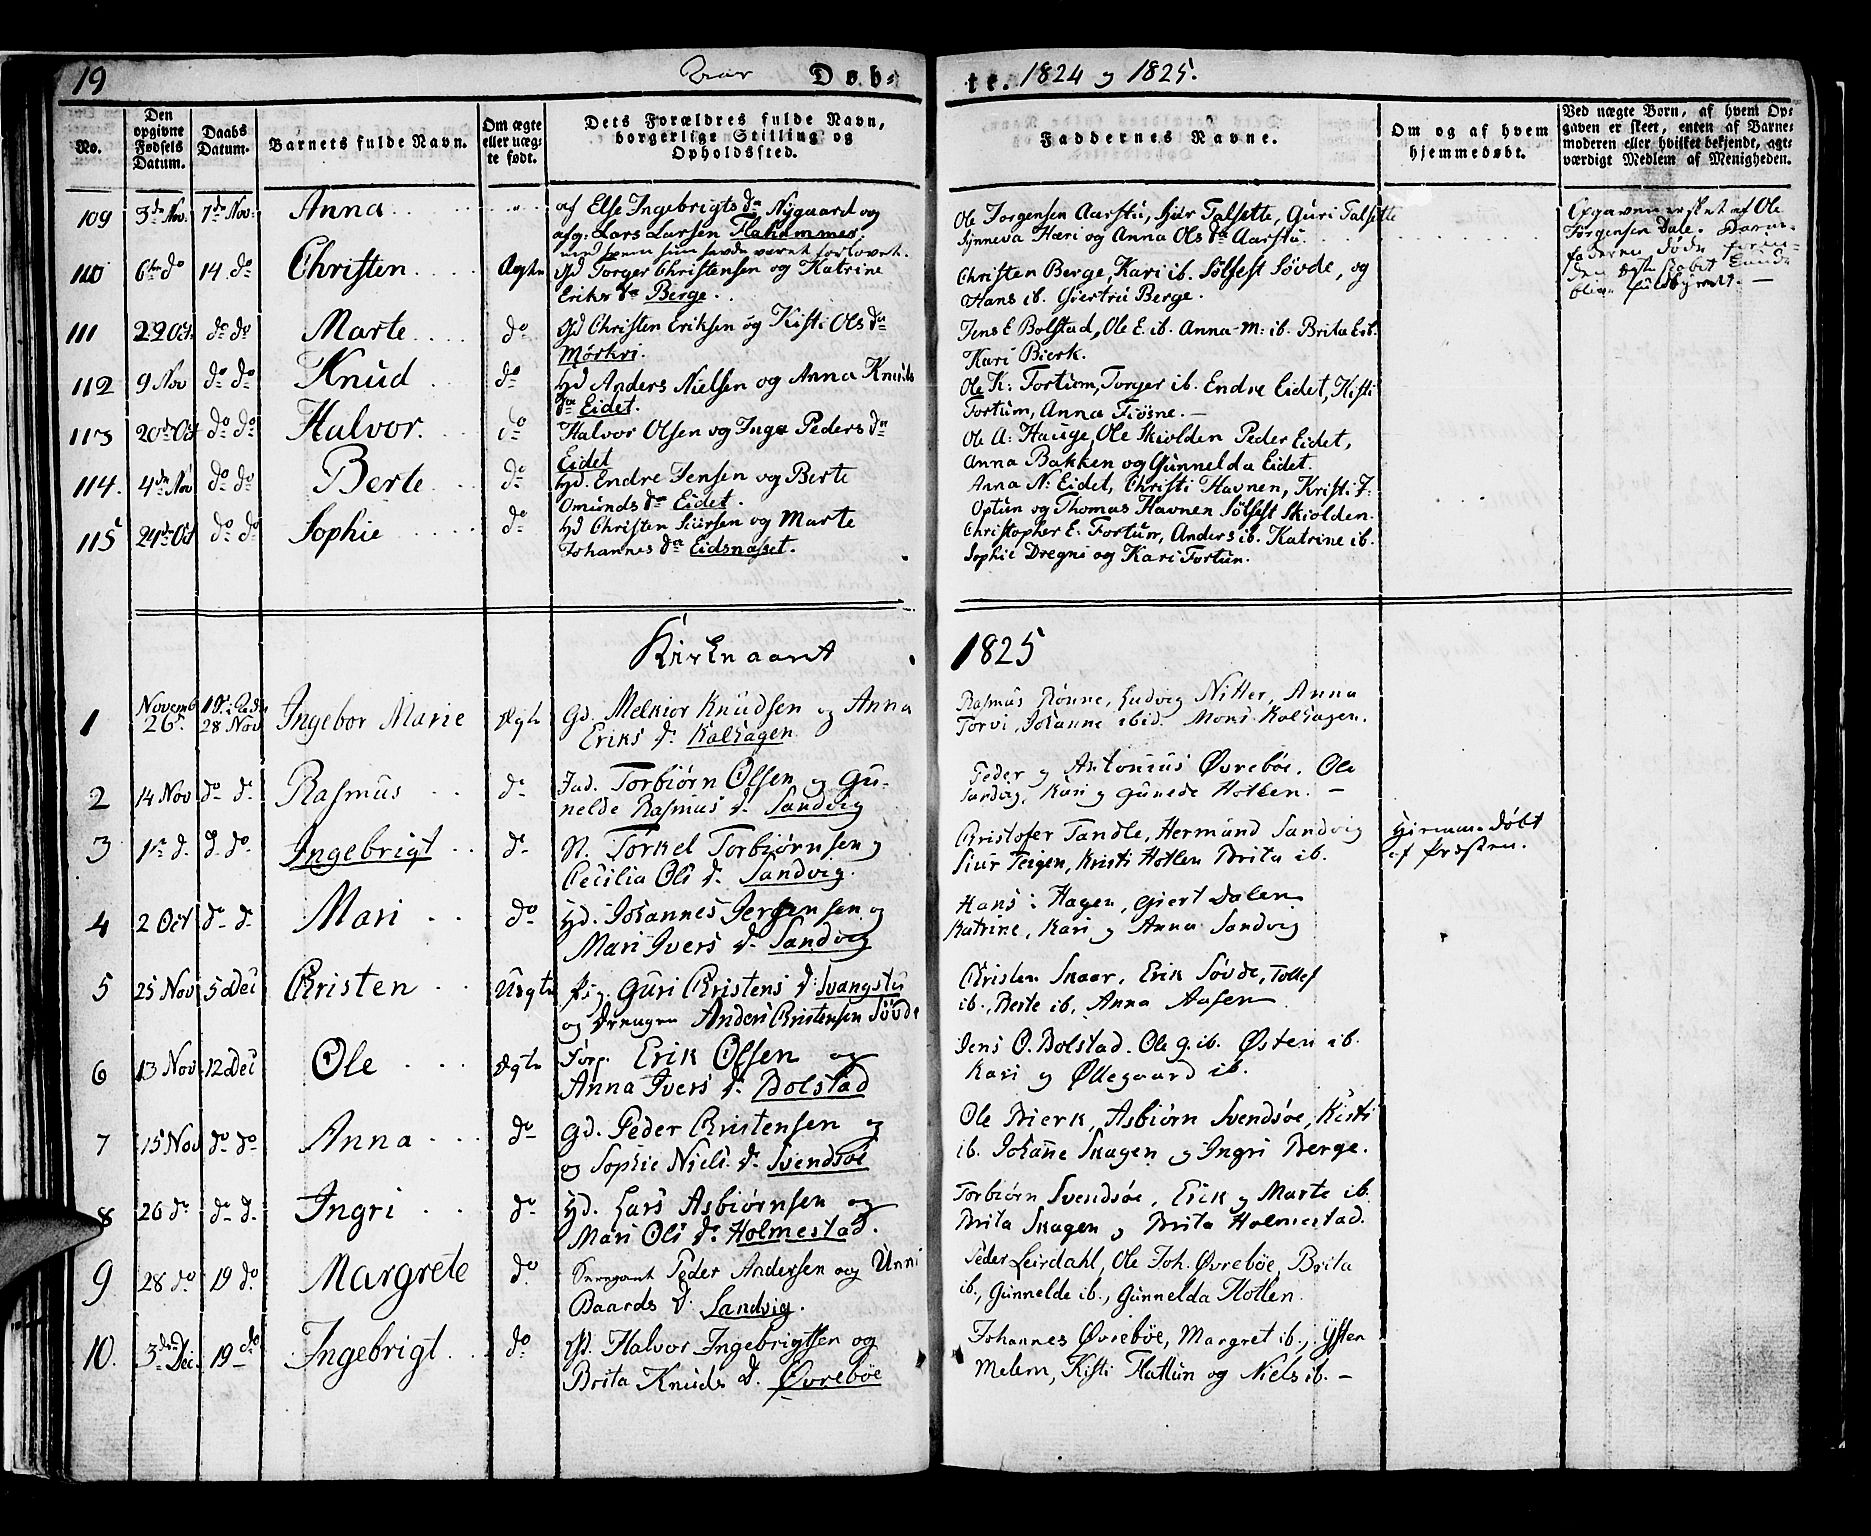 19 Døb-
te. 1824 og 1825.
No.
Den opgivne Fødsels Datum.
Daabs Datum.
Barnets fulde Navn.
Om ægte eller uægte født.
Dets Forældres fulde Navn, borgerlige Stilling og Opholdssted.
Faddernes Navne.
Om og af hvem hjemmedøbt.
Ved uægte Børn, af hvem Opgaven er skeet, enten af Barnemoderen eller hvilket bekjendt, agtværdigt Medlem af Menigheden.
109 3de Nov. 7de Nov: Anna af Else Ingebrigts da Nygaard og
afg: Lars Larsen Flahammer.
med hvem hun havde været forlovet.
Ole Jorgensen Aarstu, Siur Talsette, Guri Talsette
Synneva Hæri og Anna Ols da Aarstu.
Opgaven er skeet af Ole
Jørgensen Dale.
110 6te do 14. do Christen Ægte Gd Torger Christensen og Katrine
Eriks da Berge.
Christen Berge, Kari ib. Sølfest Søvde, og
Hans ib. Giertru Berge.
111 22 Oct. do do Marte do Gd Christen Eriksen og Kisti Ols da
Mörkri.
Jens E Bolstad, Ole E. ib. Anna M: ib. Brita E ib.
Kari Bierk.
112 9 Nov do do Knud do Hd Anders Nielsen og Anna Knuds
da Eidet.
Ole K: Fortum, Torger ib. Endre Eidet, Kisti
Fortum, Anna Fiøsne. —
113 20de Oct do do Halvor. do Halvor Olsen og Inga Peders da
Eidet
Ole A: Hauge, Ole Skiolden Peder Eidet,
Anna Bakken og Gunnelda Eidet.
114. 4de Nov do do Berte do Hd Endre Jensen og Berte
Omunds da Eidet.
Anna N: Eidet, Christi Havnen, Kristi J:
Optun og Thomas Havnen Sølfest Skiolden.
115 24de Oct do do Sophie do Hd Christen Siursen og Marte
Johannes da Eidsnæsset.
Christopher E. Fortum, Anders ib. Katrine ib.
Sophie Dregni og Kari Fortun.
Kirkeaaret 1825
1 Novemb 26 28 Nov Ingebor Marie Ægte Gd. Melkior Knudsen og Anna
Eriks d. Kalhagen
Rasmus Rønne, Ludvig Nitter, Anna
Torvi, Johanne ibid. Mons Kalhagen.
2 14 Nov do do Rasmus do Ind. Torbiørn Olsen og Gu-
nelde Rasmus d. Sandvig
Peder og Antonius Øvrebøe. Ole
Sandvig, Kari og Gunede Hotlen. —
3 1ste d. d. do. Ingebrigt do N. Torkel Torbiørnsen og
Cecilia Ols d. Sandvig.
Cristofer Tandle, Hermund Sandvig
Siur Teigen, Kristi Hotlen Brita ib.
Hiemme døbt
af Præsten.
4 2 Oct do do Mari do Hd. Johannes Jergensen og
Mari Ivers d. Sandvig
Hans i Hagen, Giert Dalen
Katrine, Kari og Anna Sandvig
5 25 Nov 5 Dec Cristen Uægte Pig. Guri Cristens d. Svangstu
og Drengen Anders Cristensen Søvde
Cristen Skaar, Erik Søvde, Tollef
ib., Berte ib, Anna Aasen
6 13 Nov 12 Dec Ole Ægte Torp. Erik Olsen og
Anna Ivers d. Bolstad
Jens O. Bolstad. Ole G. ib. Østen ib.
Kari og Øllegaard ib.
7 15 Nov do do Anna do Gd. Peder Cristensen og
og Sophie Niels d. Svendsøe
Ole Bierk, Asbiørn Svendsøe, Kisti
ib. Johanne Skagen og Ingri Berge.
8 26 do do d. Ingri do Hd. Lars Asbiørnsen og
Mari Ols d. Holmestad.
Torbiørn Svendsøe, Erick og Marte ib.
Brita Skagen og Brita Holmestad.
9 28 do 19 do Margrete do Sergeant Peder Andersen og Unni
Baards d. Sandvig.
Peder Leirdahl, Ole Joh. Øvrebøe, Brita
ib., Gunnelde ib., Gunnelda Hotlen.
10. 3de Dec. 19 do Ingebrigt do Gd. Halvor Ingebrigtsen og
Brita Knuds d. Øvrebøe
Johannes Øvrebøe, Margret ib., Ysten
Melem, Kisti Flattun og Niels ib. —